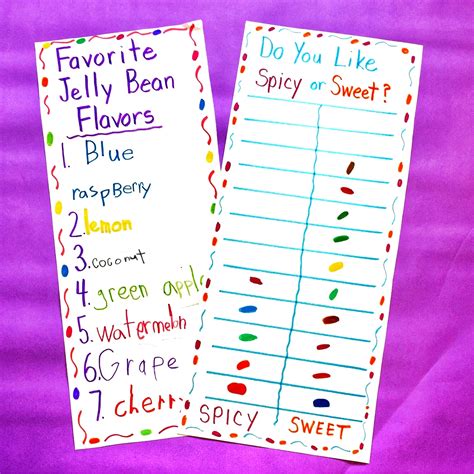 Favorite
Jelly Bean
Flavors
1. Blue
raspBerry
2. lemon
3. coconut
4. green apple
5. watermelon
6. Grape
7. cherry
Do You Like
Spicy or Sweet?
SPICY SWEET